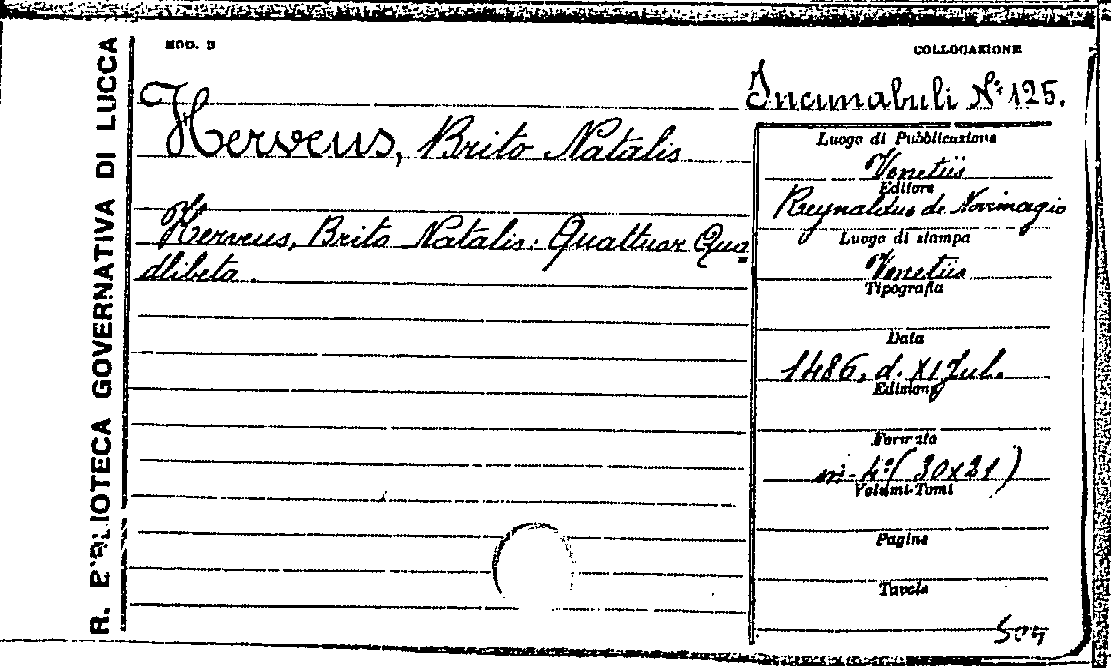 R. BIBLIOTECA GOVERNATIVA DI LUCCA
MOD. B
COLLOCAZIONE
Incunabuli N° 125.
Herveus, Brito Natalis
Herveus, Brito Natalis: Quattuor Quo
dlibeta.
Luogo di Pubblicazione
Venetiis
Editore
Reynaldus de Novimagio
Luogo di stampa
Venetiis
Tipografia
Data
1486, d. XI Jul.
Edizione
Formato
in-4° (30x21)
Volumi-Tomi
Pagine
Tavole